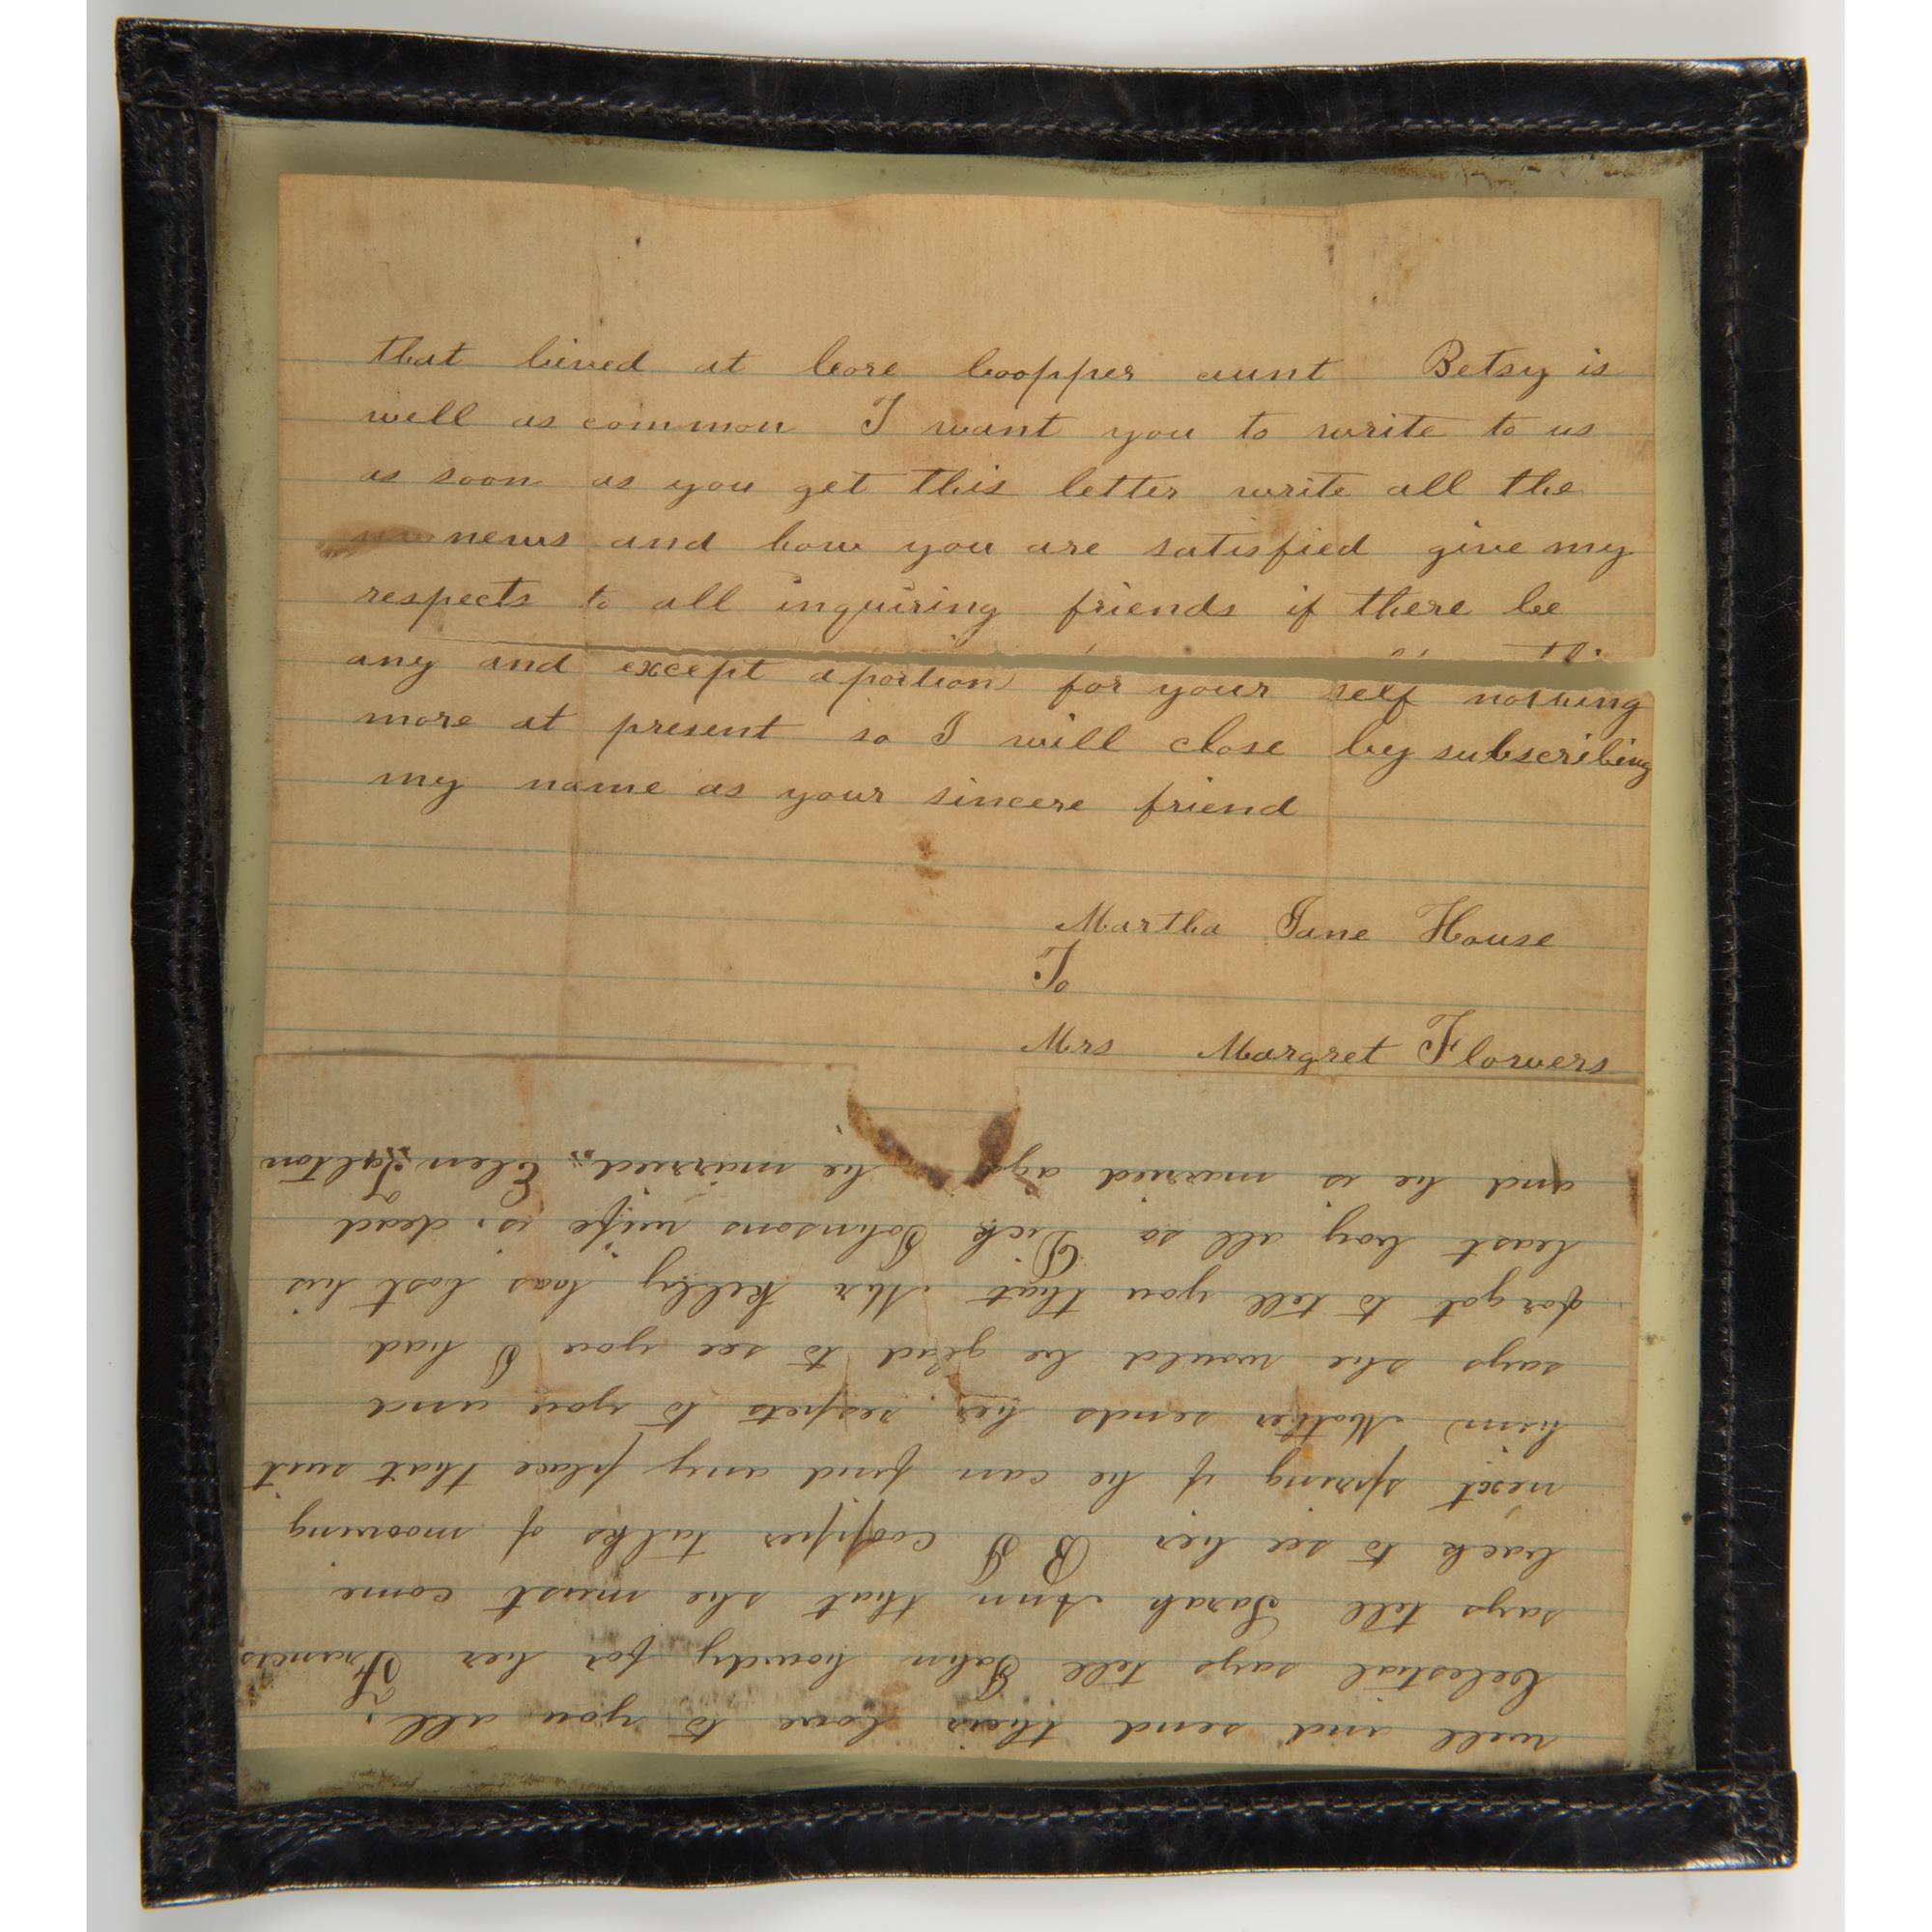 that lived at Core Coopper aunt Betsy is
well as common I want you to write to us
as soon as you get this letter write all the
news and how you are satisfied give my
respects to all inquiring friends if there be
any and except aportion for your self nothing
more at present so I will close by subscribing
my name as your sincere friend
Martha Jane House
To
Mrs Margret Flowers
well and send their love to you all.
Celestial says tell John howdy for her Francis
says tell Sarah Ann that she must come
back to see her B J coopper talks of mooving
next spring if he can find any place that suit
him Mother sends her respets to you and
says she would be glad to see you I had
forgot to tell you that Mr Kelly has lost his
least boy all so Dick Johnsons wife is dead
and he is married he married Elen Talton